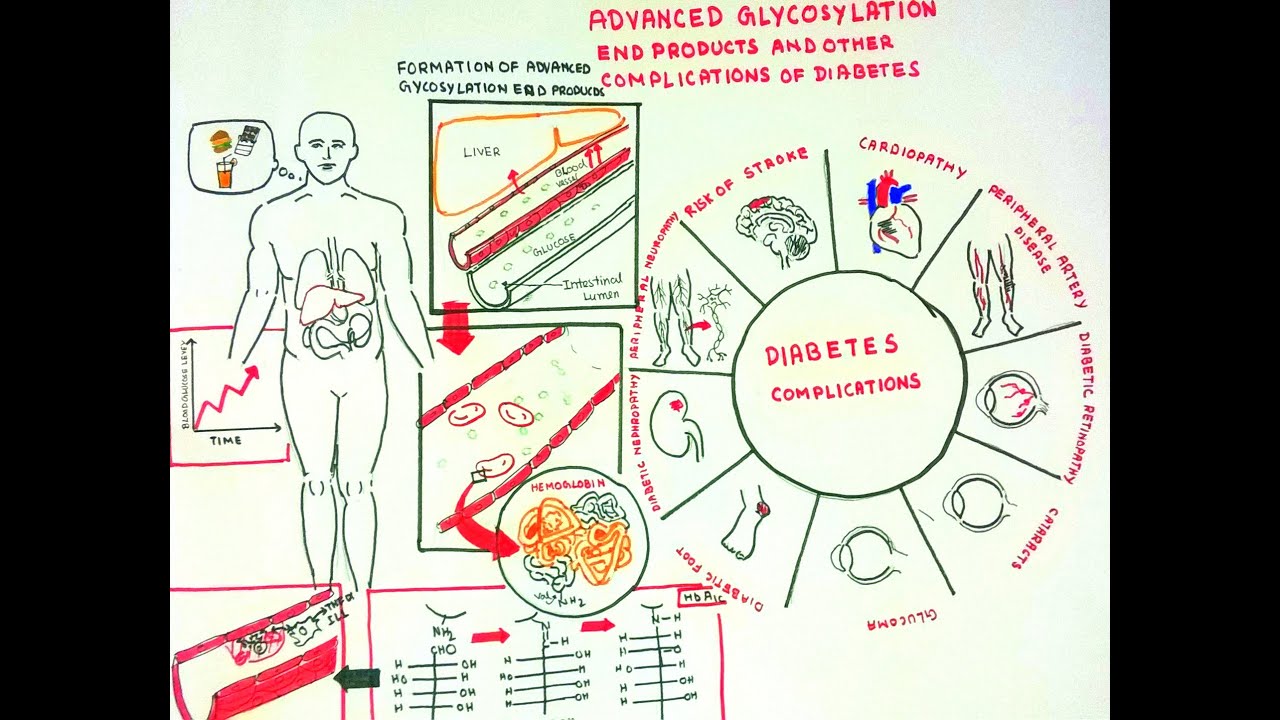 ADVANCED GLYCOSYLATION
END PRODUCTS AND OTHER
COMPLICATIONS OF DIABETES
FORMATION OF ADVANCED
GYCOSYLATION END PRODUCDS
LIVER
Blood
vessel
GLUCOSE
Intestinal
Lumen
BLOOD GLUCOSE LEVEL
TIME
HEMOGLOBIN
val
NH2
HbA1c
TNF α
IL1
NH2
CHO
H OH
HO H
H OH
H OH
H
H OH
HO H
H OH
H OH
N H
H H
O
HO H
H OH
H OH
DIABETES
COMPLICATIONS
RISK OF STROKE
CARDIOPATHY
PERIPHERAL ARTERY
DISEASE
DIABETIC RETINOPATHY
CATARACTS
GLUCOMA
DIABETIC FOOT
DIABETIC NEPHROPATHY
PERIPHERAL NEUROPATHY